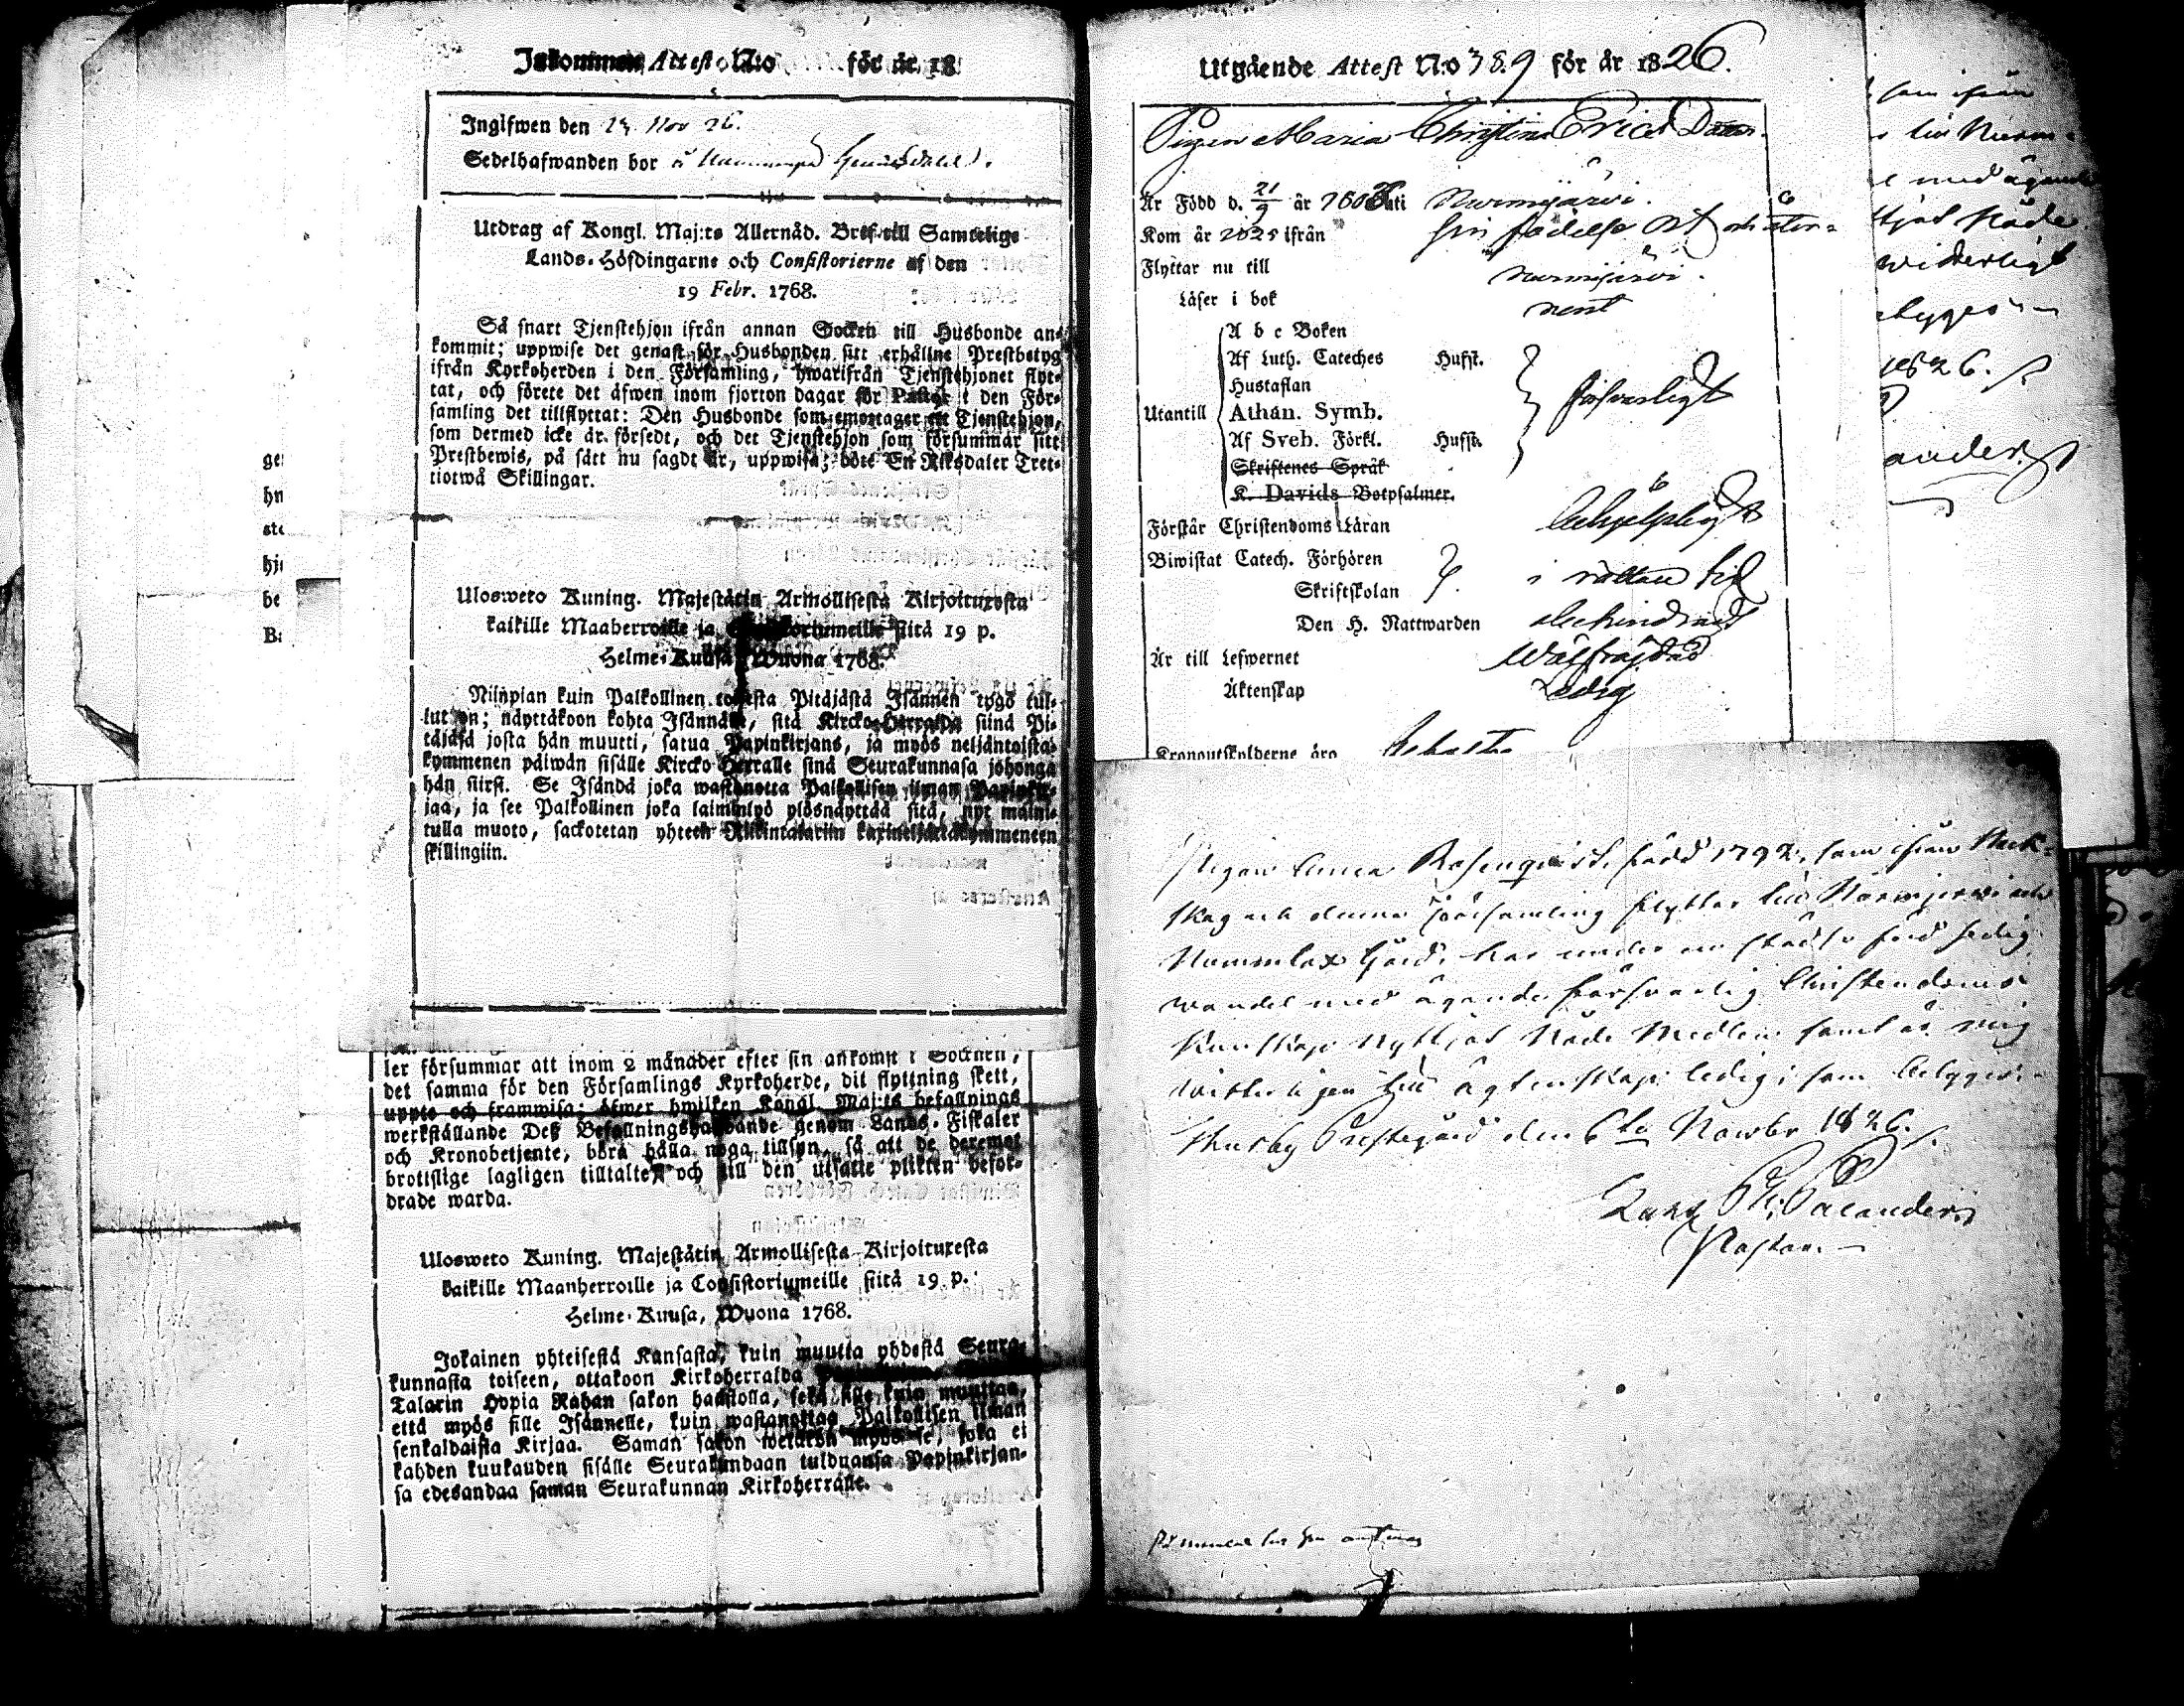 Inkommen Attest N:o för år 18
Ingifwen den 23 Nov 26.
Sedelhafwanden bor å
Utdrag af Kongl. Maj:ts Allernåd. Bref till Samtelige
Lands-Höfdingarne och Consistorierne af den
19 Febr. 1768.
Så snart Tjenstehjon ifrån annan Socken till Husbonde an-
kommit; uppwise det genast för Husbonden sitt erhållne Prestbetyg
ifrån Kyrkoherden i den Församling, hwarifrån Tjenstehjonet flyt-
tat, och förete det äfwen inom fjorton dagar för Pastor i den För-
samling det tillflyttat: Den Husbonde som emottager ett Tjenstehjon,
som dermed icke är försedt, och det Tjenstehjon som försummar sitt
Prestbewis, på sätt nu sagdt är, uppwisa; böte En Riksdaler Tret-
tiotwå Skillingar.
Ulosweto Kuning. Majestätin Armollisesta Kirjoituxesta
kaikille Maaherroille ja Consistoriumeille siitä 19 p.
Helme-Kuusa Wuona 1768.
Niinpian kuin Palkollinen toisesta Pitäjästä Isännen tygö tul-
lut on; näyttäkoon kohta Isännälle, sitä Kircko-Herralda siinä Pi-
täjäsä josta hän muutti, saatua Papinkirjans, ja myös neljäntoista-
kymmenen päiwän sisälle Kircko-Herralle siinä Seurakunnasa johonga
hän siirsi. Se Isändä joka wastanotta Palkollisen ilman Papinkir-
jaa, ja see Palkollinen joka laiminlyö ylösnäyttää sitä, nyt maini-
tulla muoto, sackotetan yhteen Rikintalariin kaxineljättäkymmeneen
skillingiin.
ler försummar att inom 2 månader efter sin ankomst i Socknen,
det samma för den Församlings Kyrkoherde, dit flyttning skett,
uppte och framwisa: öfwer hwilken Kongl. Maj:ts befallnings
werkställande Deß Befallningshafwande genom Lands-Fiskaler
och Kronobetjente, böra hålla noga tillsyn, så att de deremot
brottslige lagligen tilltalte och till den utsatte plikten befor-
drade warda.
Ulosweto Kuning. Majestätin Armollisesta Kirjoituxesta
kaikille Maanherroille ja Consistoriumeille siitä 19 p.
Helme-Kuusa, Wuona 1768.
Jokainen yhteisestä Kansasta, kuin muutta yhdestä Seura-
kunnasta toiseen, ottakoon Kirkoherralda
Talarin Hopia Rahan sakon haastolla, sekä sille kuin muuttaa,
että myös sille Isännelle, kuin wastanottaa Palkollisen ilman
senkaldaista Kirjaa. Saman sakon wetäkön myös se, joka ei
kahden kuukauden sisälle Seurakundaan tulduansa Papinkirjan-
sa edesandaa saman Seurakunnan Kirkoherralle.
ge
hn
ste
hj
be
B
Utgående Attest N:o 389 för år 1826.
Pigan Maria Christina Ericsdotter
Är Född d. 21/9 år 180 uti Nurmijärvi.
Kom år 1825 ifrån sin födelse Ort och åter-
Flyttar nu till Nurmijärvi.
Läser i bok rent
A b c Boken
Af Luth. Cateches Hufst.
Hustaflan
Utantill Athan. Symb. försvarligt
Af Sveb. Förkl. Hufst.
Skriftenes Språk
K. Davids Botpsalmer.
Förstår Christendoms Läran behjelpligt
Biwistat Catech. Förhören
Skriftskolan i rättan tid
Den H. Nattwarden
Är till Lefwernet Wälfräjdad
Äktenskap Ledig
Kronoutskylderne äro
Pigan Anna Rosenqvist, född 1792, som ifrån
skog och denna församling flyttar till Nurmijerwi och
Nummlax Gård, har under en städse förd sedig
wandel med ägande försvarlig Christendoms
Kunskap nyttjat Nåde Medlen samt är mig
witterligen till ägtenskap ledig; som betygas.
Thusby Prestegård den 6te Novbr 1826.
Palander
Pastor.
som ifrån
till Nurm-
med ägande
tjat Nåde
witterligt
betygas
1826.
ander